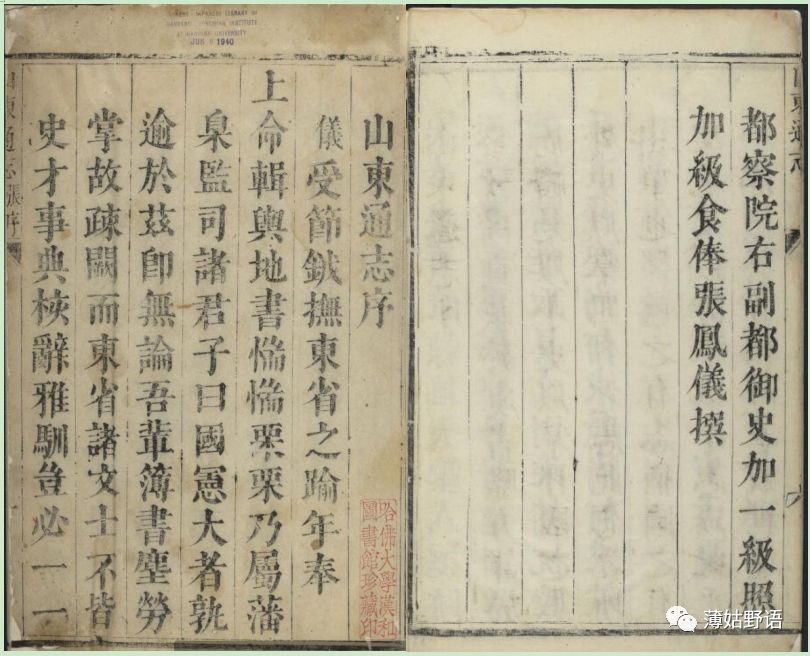 CHINESE-JAPANESE LIBRARY OF
HARVARD-YENCHING INSTITUTE
AT HARVARD UNIVERSITY
JUN 1940
山東通志序
儀受節鉞撫東省之踰年奉
上命輯輿地書惴惴栗栗乃屬藩
臬監司諸君子曰國憲大者孰
逾於茲卽無論吾輩簿書塵勞
掌故疎闕而東省諸文士不皆
史才事典核辭雅馴豈必一一
山東通志 張序
哈佛大學漢和
圖書館珍藏印
山東通志
都察院右副都御史加一級照
加級食俸張鳳儀撰
薄姑野语